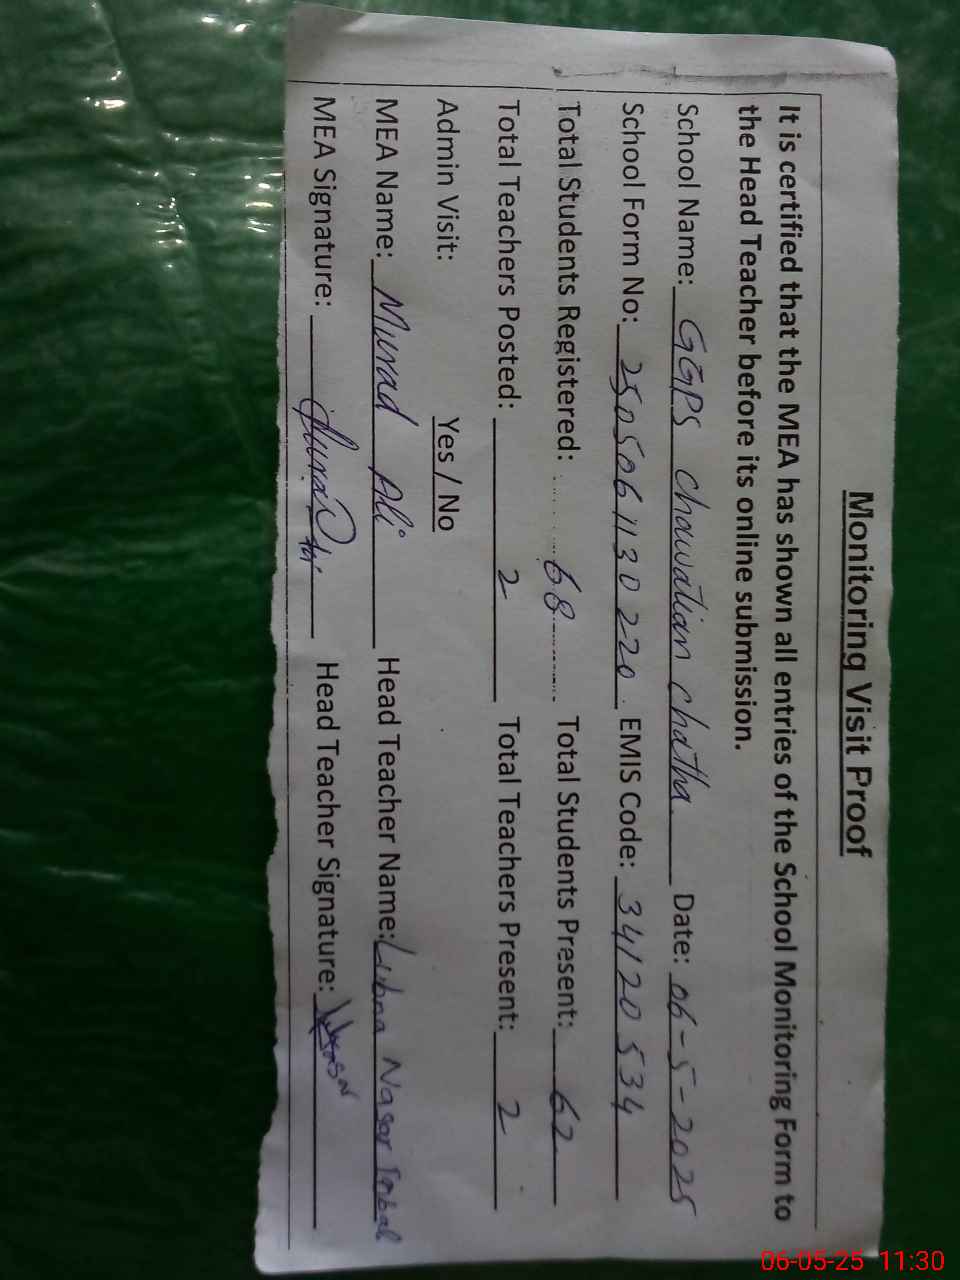 Monitoring Visit Proof
It is certified that the MEA has shown all entries of the School Monitoring Form to
the Head Teacher before its online submission.
School Name: GGPS chawalian chatha Date: 06-5-2025
School Form No: 250506 1130 220 EMIS Code: 34120534
Total Students Registered: 68 Total Students Present: 62
Total Teachers Posted: 2 Total Teachers Present: 2
Admin Visit: Yes / No
MEA Name: Murad Ali Head Teacher Name: Lubna Nasar Iqbal
MEA Signature: Head Teacher Signature:
06-05-25 11:30